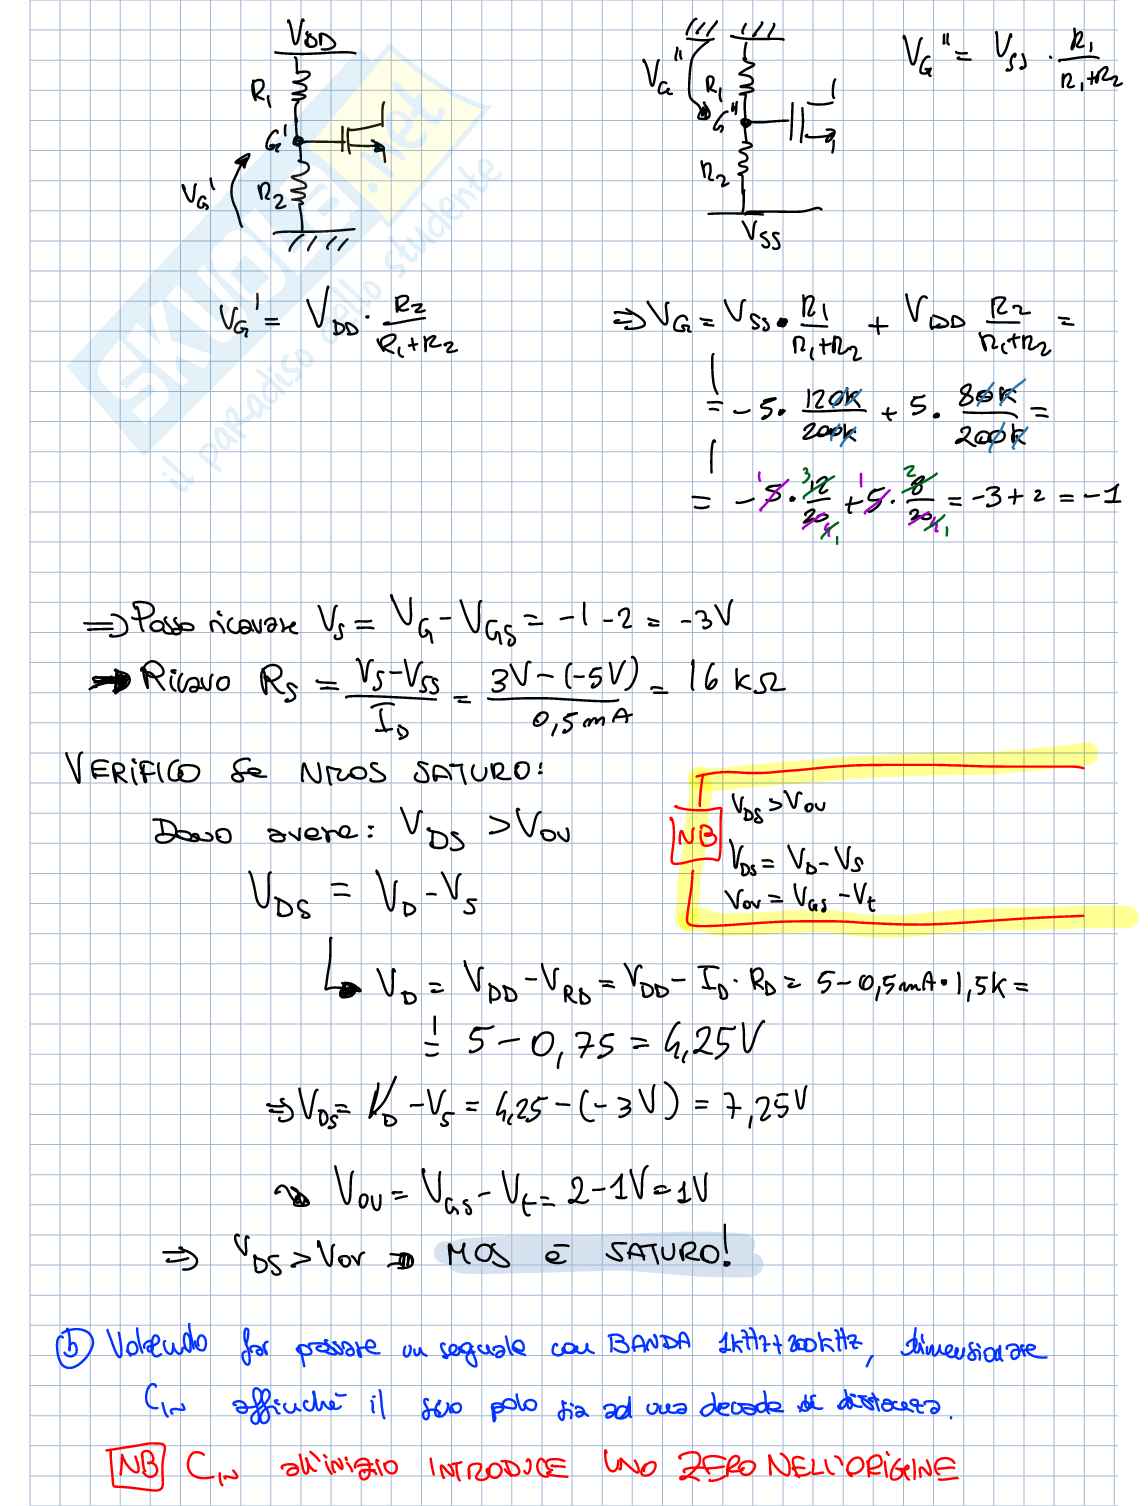 V_DD
R_1
G'
V_G'
R_2
V_G' = V_DD · R_2 / (R_1+R_2)
V_G''
R_1
G''
R_2
V_SS
V_G'' = V_SS · R_1 / (R_1+R_2)
⇒ V_G = V_SS · R_1 / (R_1+R_2) + V_DD R_2 / (R_1+R_2) =
= -5 · 120K / 200K + 5 · 80K / 200K =
= -5 · 12 / 20 + 5 · 8 / 20 = -3 + 2 = -1
⇒ Posso ricavare V_S = V_G - V_GS = -1 - 2 = -3V
→ Ricavo R_S = (V_S - V_SS) / I_D = (3V - (-5V)) / 0,5mA = 16 kΩ
VERIFICO Se NMOS SATURO:
Devo avere: V_DS > V_OV
NB
V_DS > V_OV
V_DS = V_D - V_S
V_OV = V_GS - V_t
V_DS = V_D - V_S
V_D = V_DD - V_RD = V_DD - I_D · R_D = 5 - 0,5mA · 1,5K =
= 5 - 0,75 = 4,25V
⇒ V_DS = V_D - V_S = 4,25 - (-3V) = 7,25V
V_OV = V_GS - V_t = 2 - 1V = 1V
⇒ V_DS > V_OV ⇒ MOS È SATURO!
b) Volendo far passare un segnale con BANDA 1kHz÷200kHz, dimensionare
C_IN affinchè il suo polo sia ad una decade di distanza.
NB C_IN all'inizio INTRODUCE UNO ZERO NELL'ORIGINE
SKUOLA.net
il paradiso dello studente